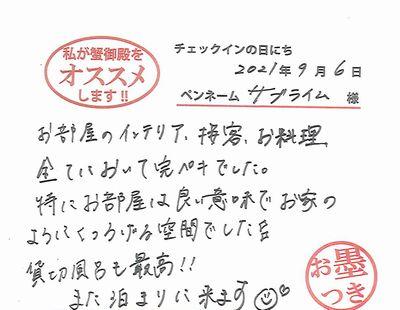 私が蟹御殿を
オススメ
します!!
チェックインの日にち
2021年 9月 6日
ペンネーム サプライム 様
お部屋のインテリア、接客、お料理、
全てにおいて完ペキでした。
特にお部屋は良い意味でお家の
ようにくつろげる空間でした
貸切風呂も最高!!
また泊まりに来ます
お墨
つき